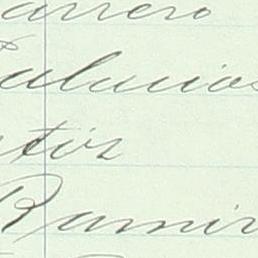 arrero
alacios
rtiz
Ramir